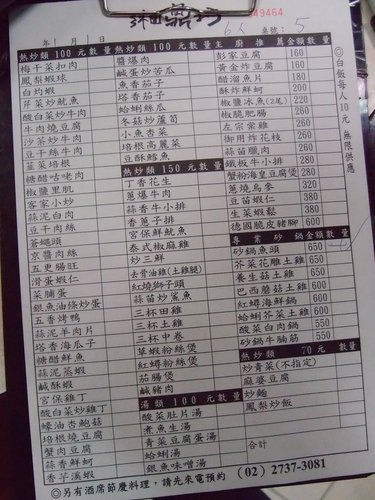 49464
年 月 日
6人
桌號: 5
熱炒類 100 元 數量
梅干菜扣肉
鳳梨蝦球
白灼蝦
芹菜炒魷魚
酸白菜炒牛肉
牛肉燒豆腐
沙茶炒牛肉
豆干絲牛肉
韮菜培根
糖醋咕咾肉
椒鹽里肌
客家小炒
蒜泥白肉
豆干肉絲
蒼蠅頭
京醬肉絲
五更腸旺
滑蛋蝦仁
菜脯蛋
銀魚油條炒蛋
五香烤鴨
蒜泥羊肉片
塔香海瓜子
糖醋鮮魚
蒜泥蒸蝦
鹹酥蝦
宮保雞丁
酸白菜炒雞丁
蠔油杏鮑菇
培根燒豆腐
蟹肉豆腐
蒜香鮮蚵
香芋溪蝦
熱炒類 100 元 數量
醬爆肉
鹹蛋炒苦瓜
魚香茄子
塔香茄子
蛤蜊絲瓜
冬菇炒蘆筍
小魚杏菜
培根高麗菜
豆酥鱈魚
熱炒類 150 元 數量
丁香花生
蔥爆牛肉
蒜香牛小排
香蔥子排
宮保鮮魷魚
泰式椒麻雞
炒三鮮
去骨油雞(土雞腿)
紅燒獅子頭
蒜苗炒鯊魚
三杯田雞
三杯土雞
三杯中卷
草蝦粉絲煲
紅蟳粉絲煲
茄腸煲
鹹豬肉
湯類 100 元 數量
酸菜肚片湯
煮魚生湯
青菜豆腐蛋湯
蛤蜊湯
銀魚味噌湯
主廚推薦 金額 數量
彭家豆腐 160
黃金炸豆腐 160
醋溜魚片 180
酥炸鮮蚵 200
椒鹽冰魚(2尾) 220
椒脆肥腸 260
左宗棠雞 260
御用炸花枝 260
蒜苗臘肉 260
鐵板牛小排 280
蟹粉海皇豆腐煲 280
蔥燒烏參 320
豆苗蝦仁 280
生菜蝦鬆 380
德國脆皮豬腳 600
專業砂鍋 金額 數量
砂鍋魚頭 650
芥菜花雕土雞 650
養生菇土雞 650
巴西蘑菇土雞 650
紅蟳海鮮鍋 650
蛤蜊芥菜土雞 650
酸菜白肉鍋 550
砂鍋牛腩筋 550
熱炒類 70 元 數量
炒青菜(不指定)
麻婆豆腐
炒麵
鳳梨炒飯
合計
◎白飯每人10元 無限供應
(02) 2737-3081
◎另有酒席節慶料理,請先來電預約